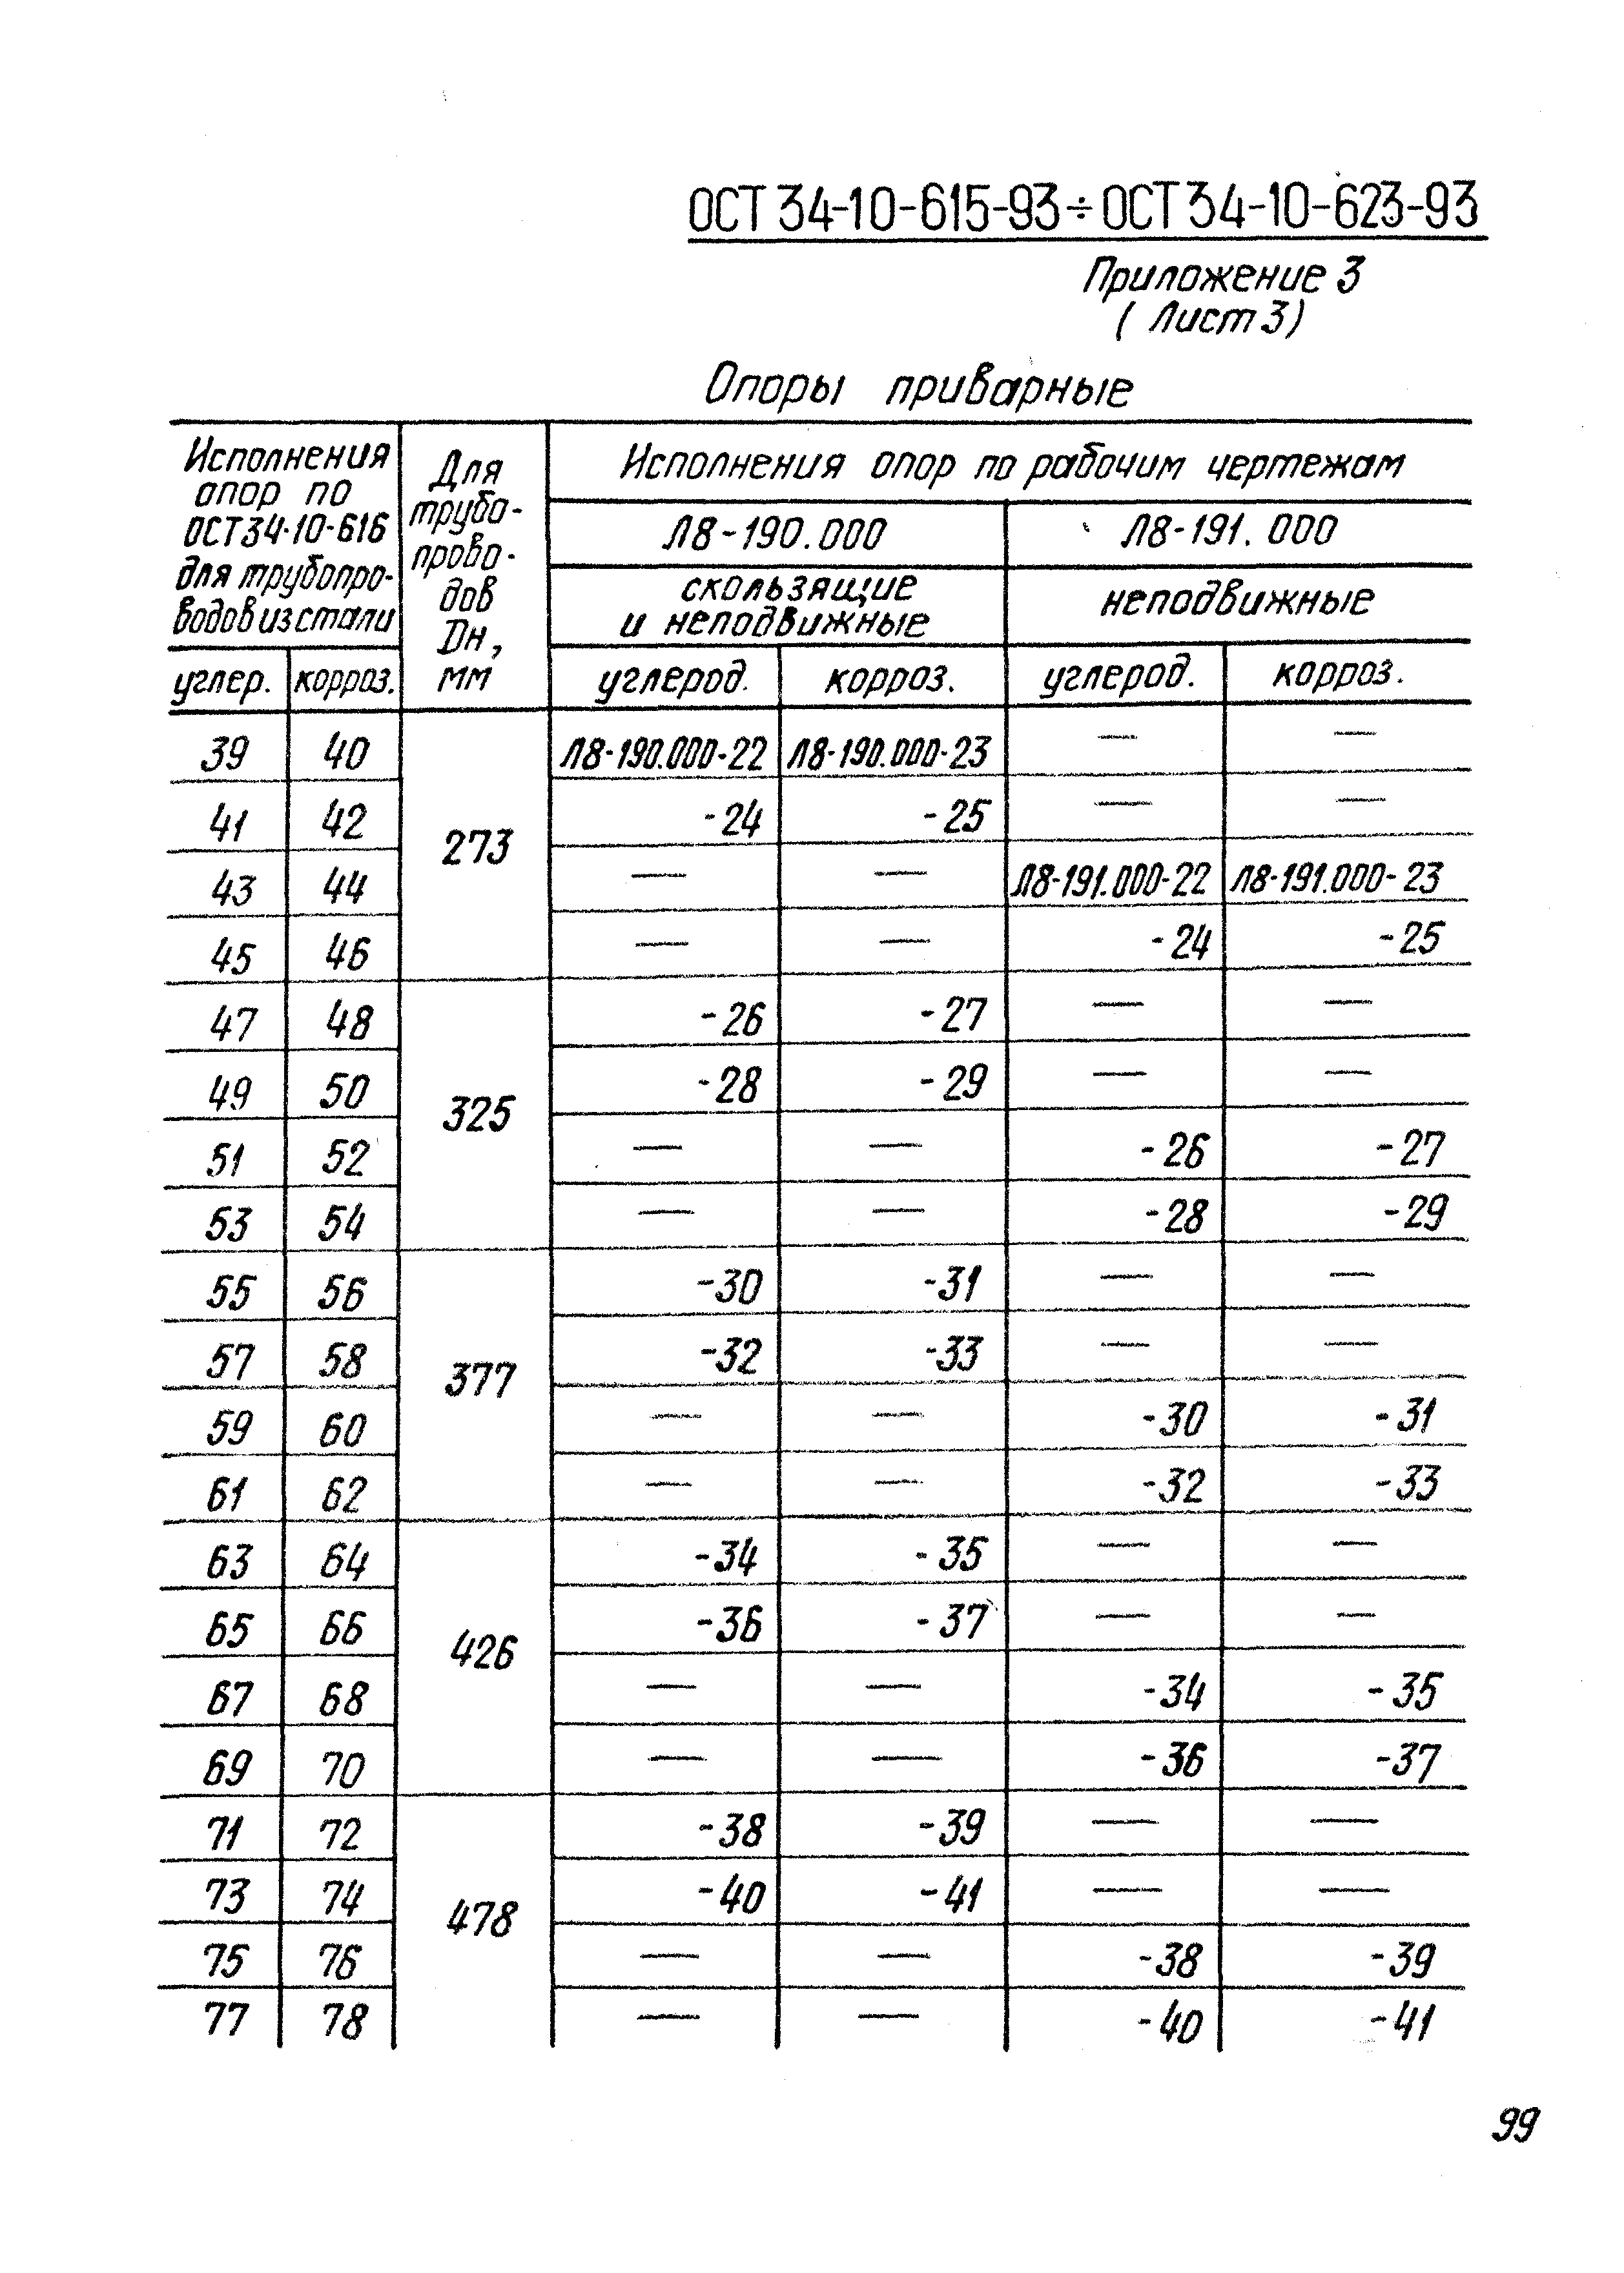 ОСТ 34-10-615-93÷ОСТ 34-10-623-93
Приложение 3
( Лист 3)
Опоры приварные
Исполнения
опор по
ОСТ34-10-616
для трубопро-
водов из стали
Для
трубо-
прово-
дов
Dн,
мм
Исполнения опор по рабочим чертежам
Л8-190.000 Л8-191. 000
скользящие
и неподвижные
неподвижные
углер. корроз. углерод. корроз. углерод. корроз.
39 40 Л8-190.000-22 Л8-190.000-23 — —
41 42 -24 -25 — —
273
43 44 — — Л8-191.000-22 Л8-191.000-23
45 46 — — -24 -25
47 48 -26 -27 — —
49 50 -28 -29 — —
325
51 52 — — -26 -27
53 54 — — -28 -29
55 56 -30 -31 — —
57 58 -32 -33 — —
377
59 60 — — -30 -31
61 62 — — -32 -33
63 64 -34 -35 — —
65 66 -36 -37 — —
426
67 68 — — -34 -35
69 70 — — -36 -37
71 72 -38 -39 — —
73 74 -40 -41 — —
478
75 76 — — -38 -39
77 78 — — -40 -41
99